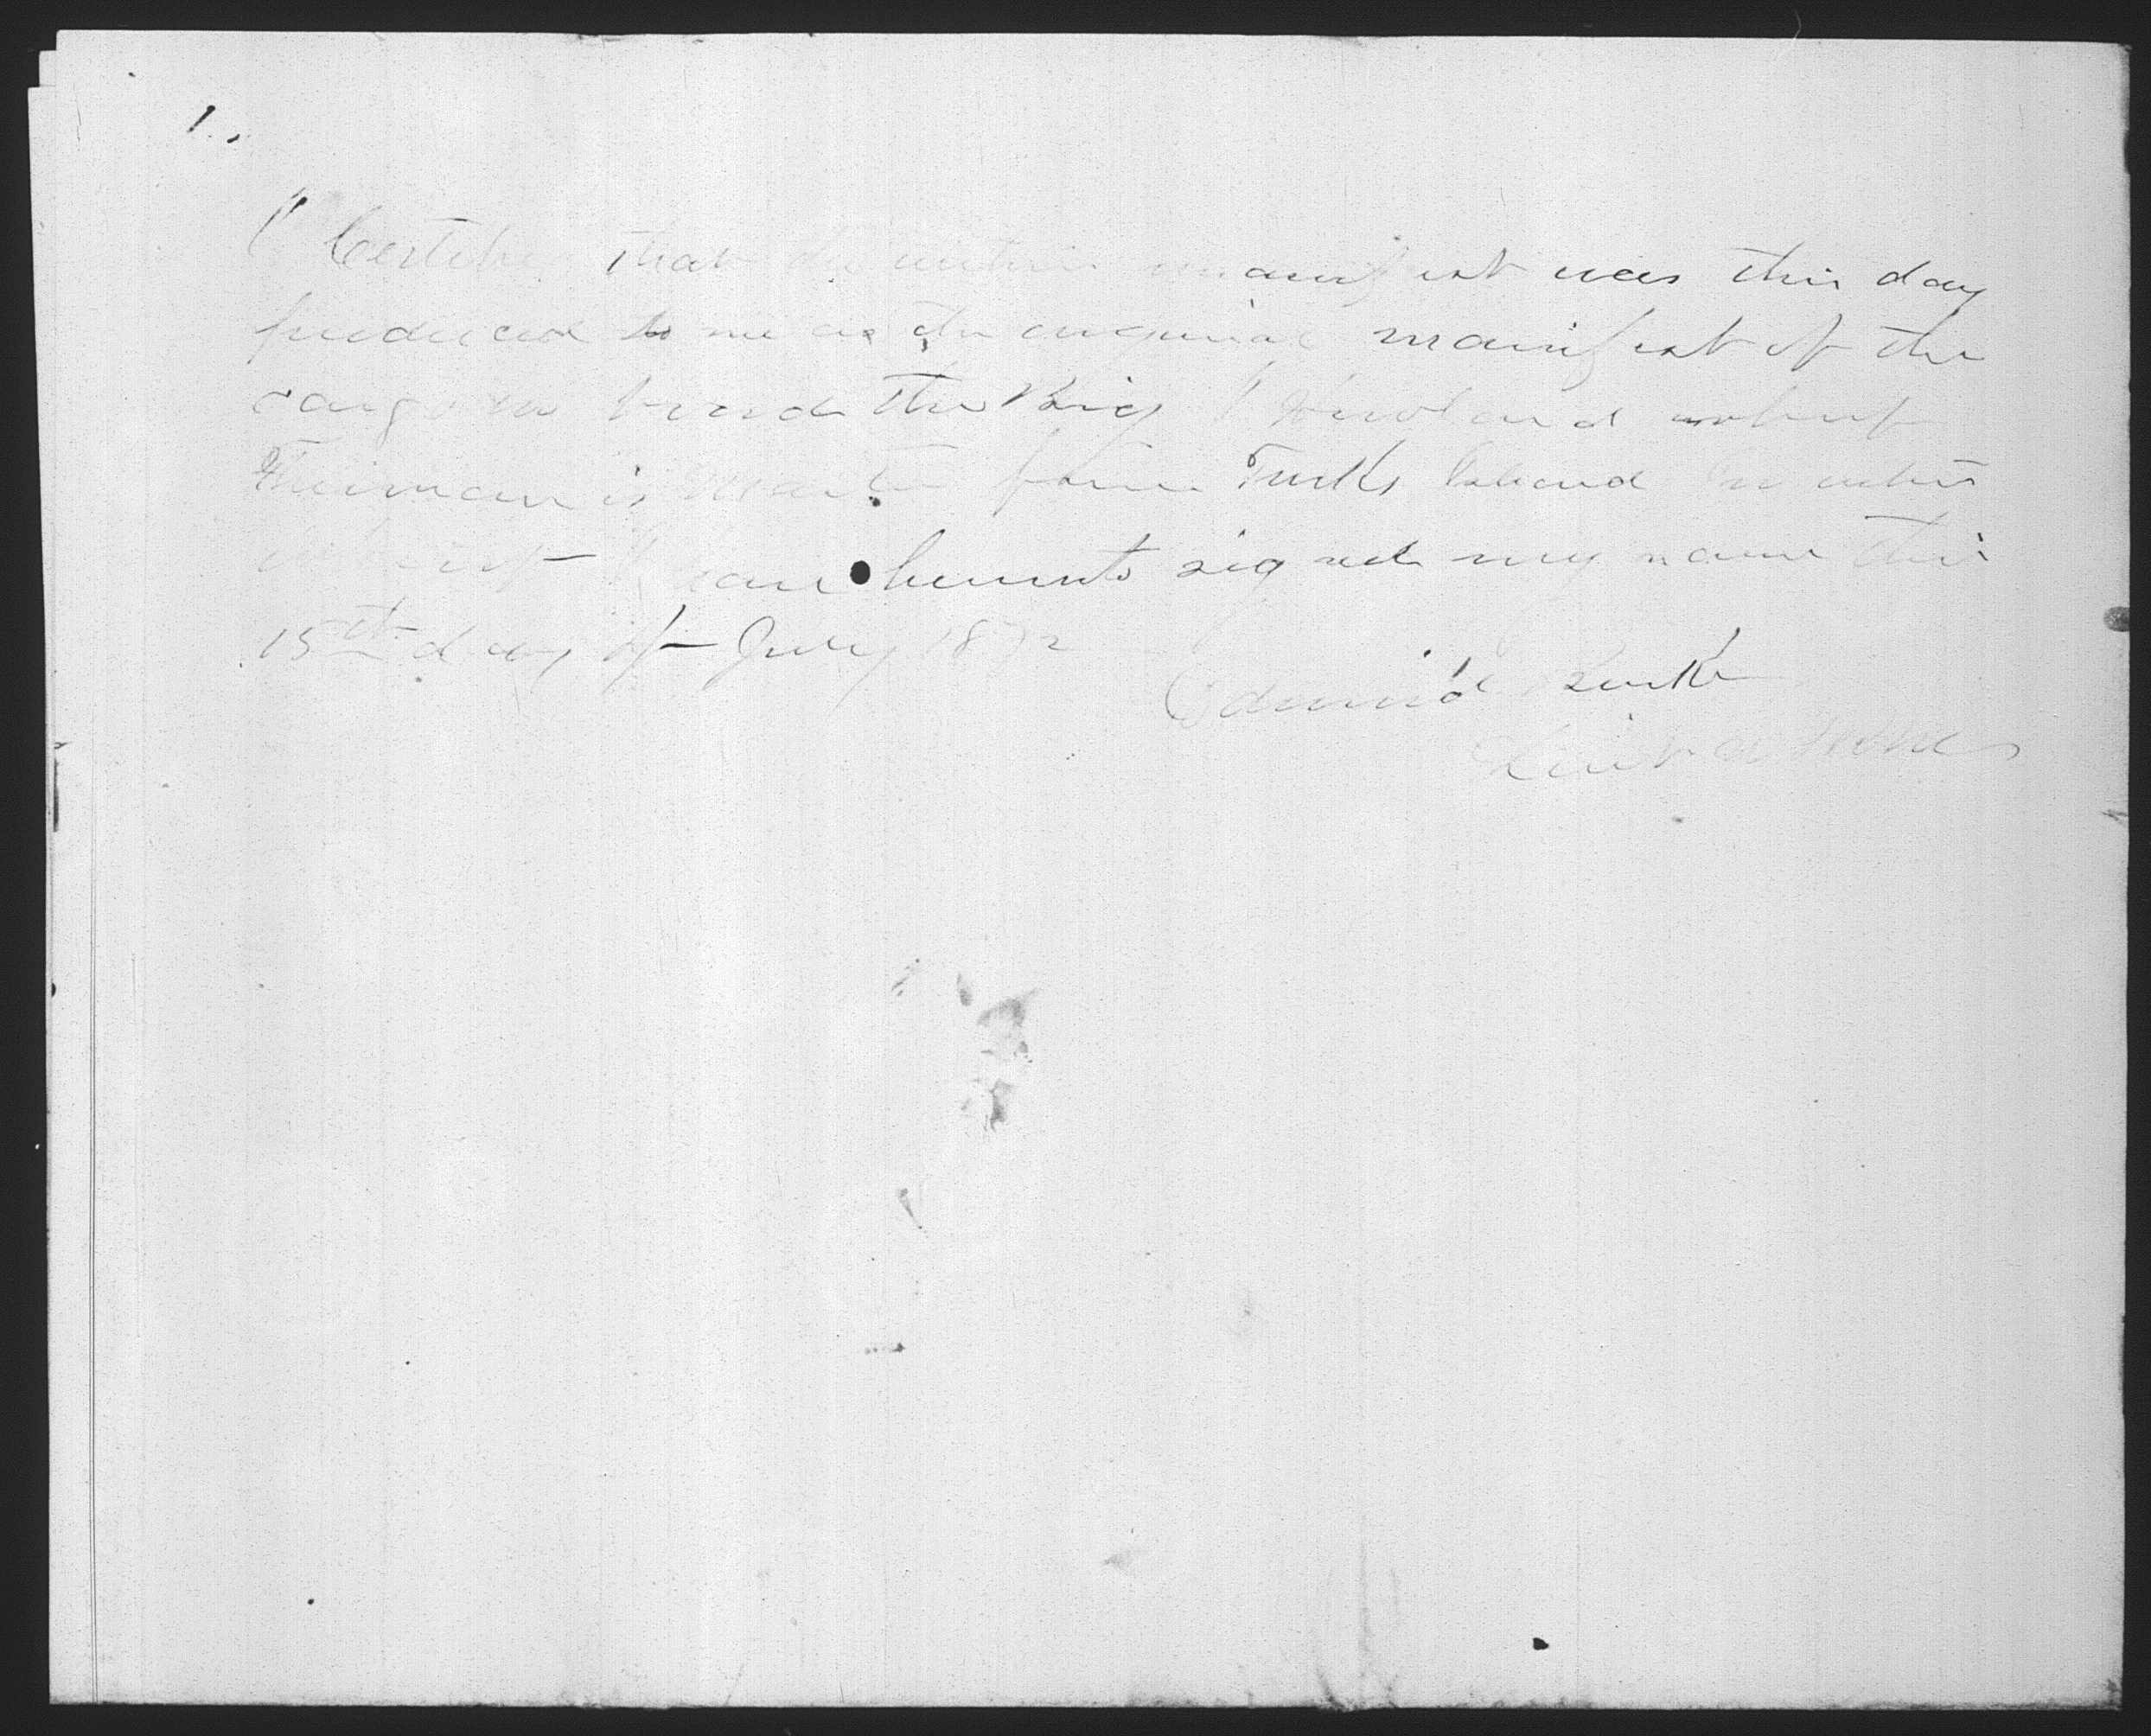 I Certify that the within manifest was this day
produced to me as the original manifest of the
cargo on board the Brig whereof
is Master from Turks Island In witness
whereof I have hereunto signed my name this
15th day of July 1872
Edmund